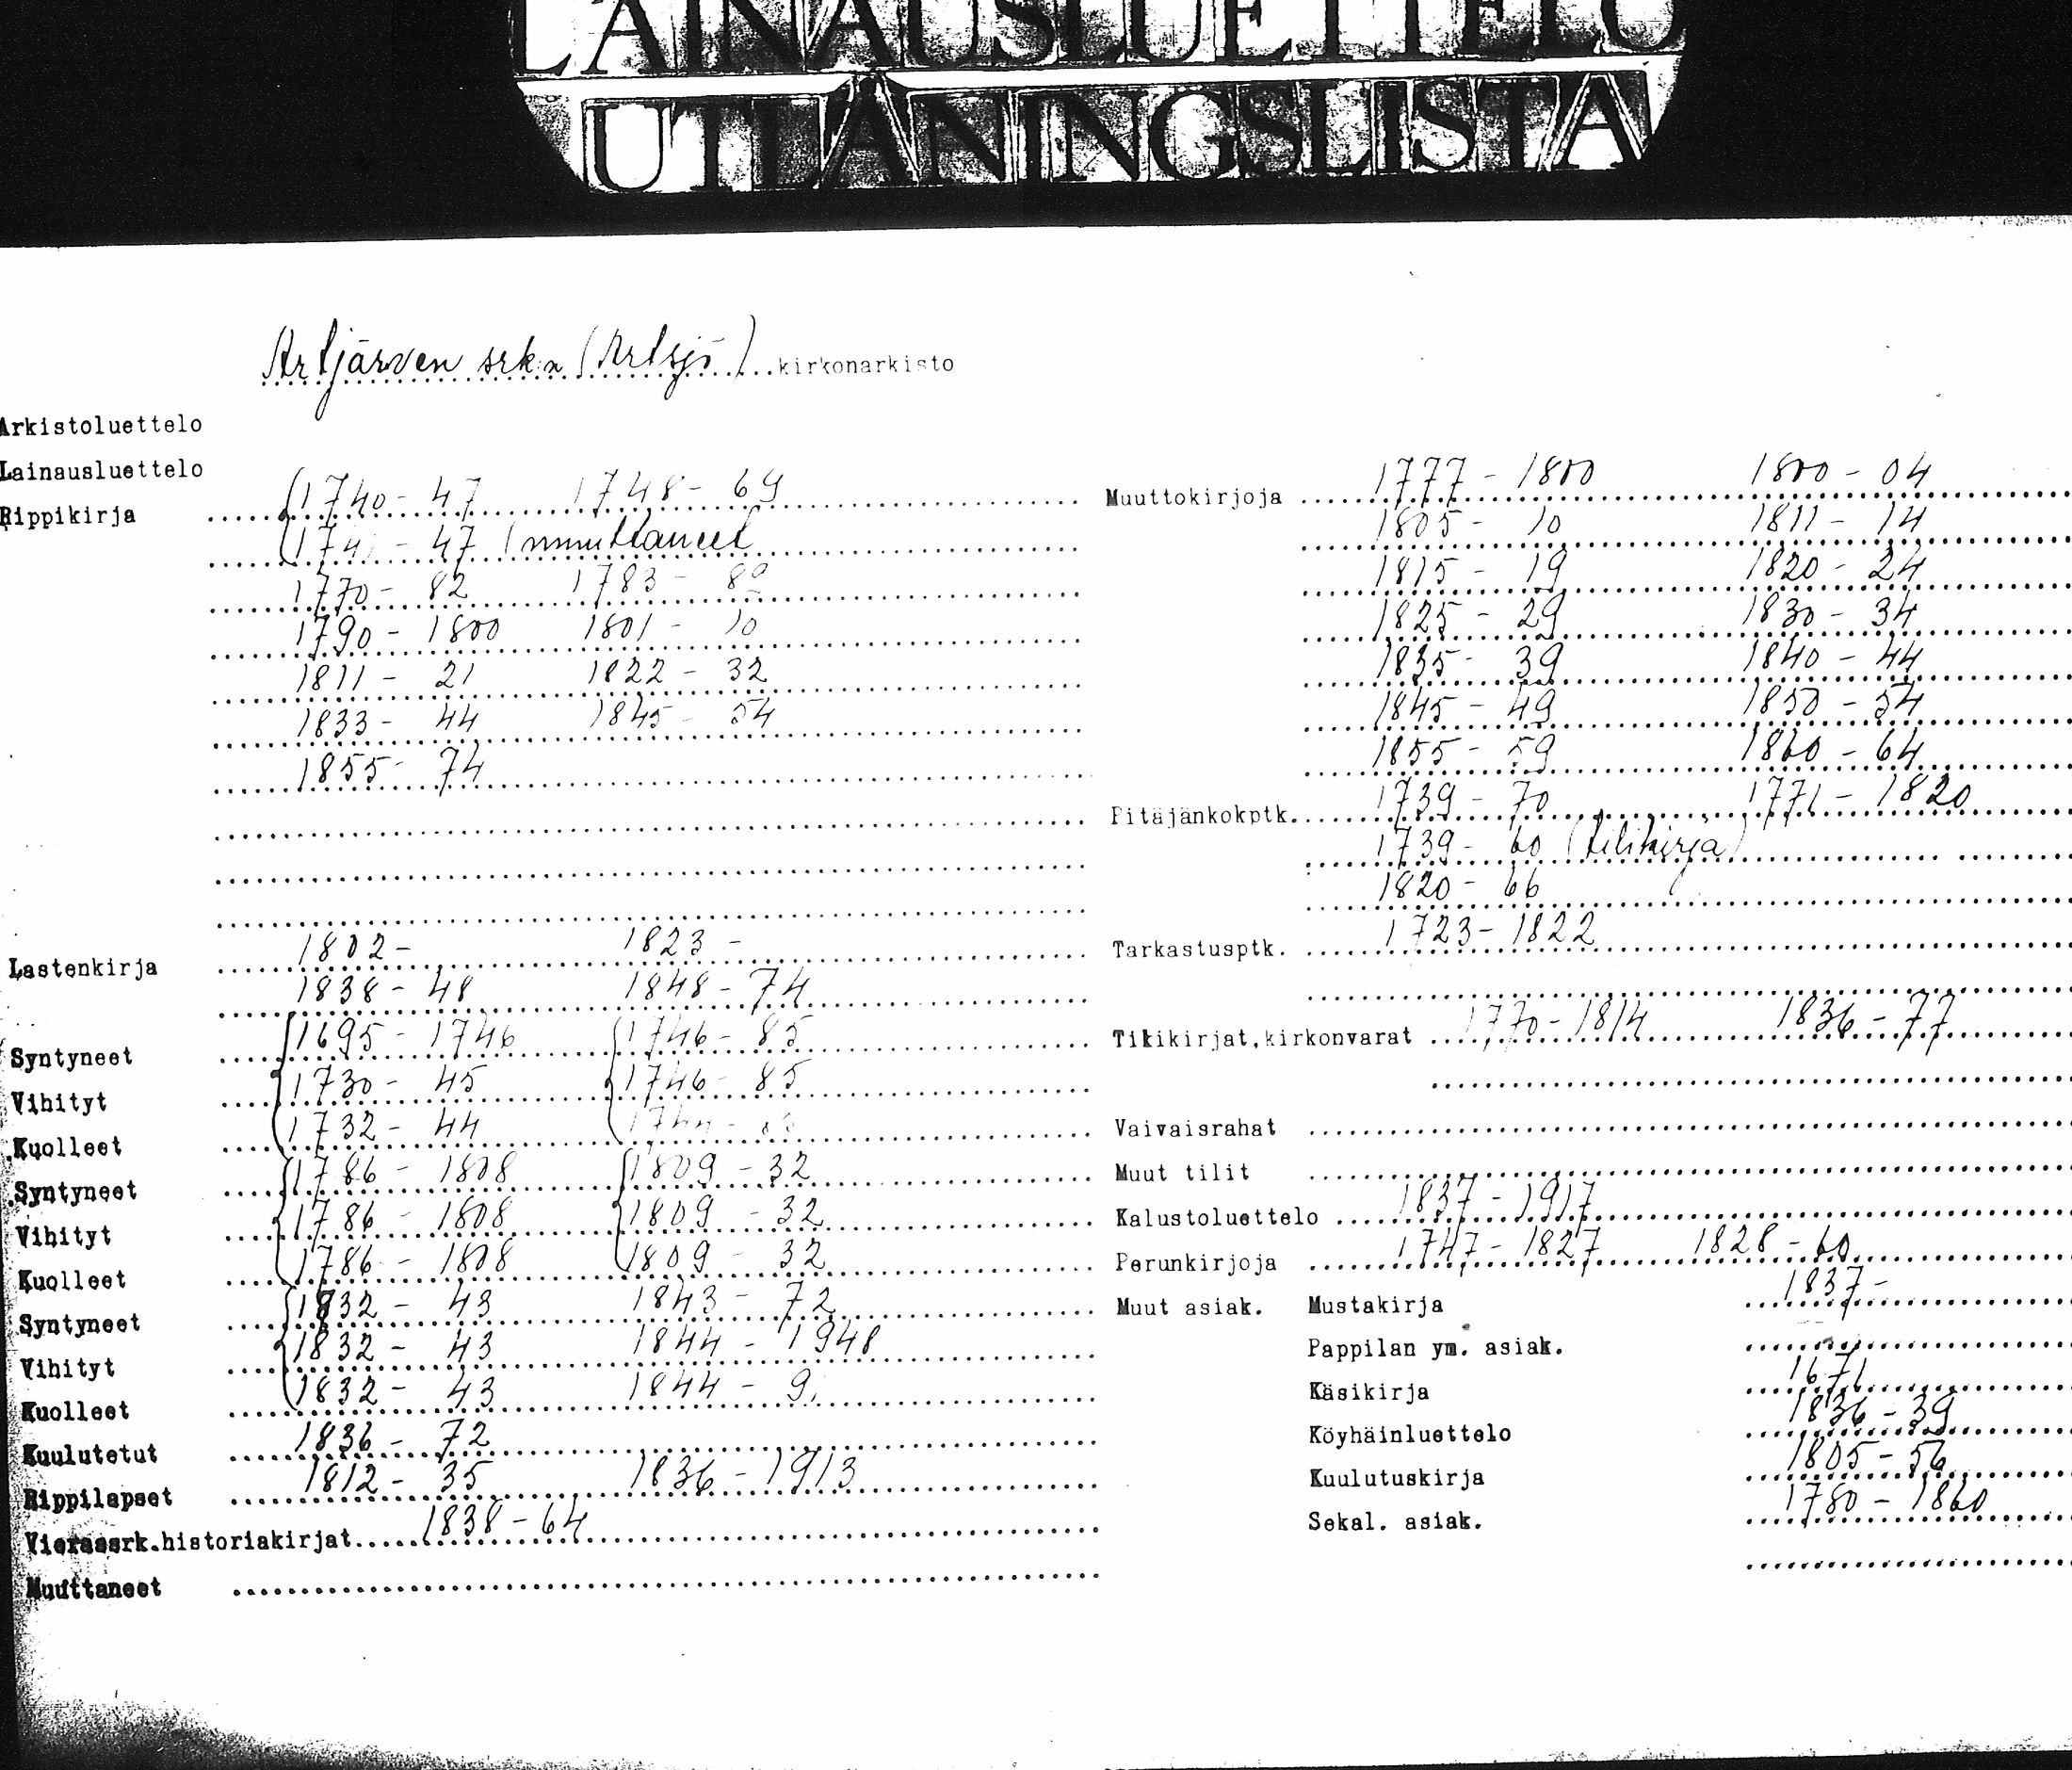 LAINAUSLUETTELO
UTLÅNINGSLISTA
Artjärven srk:n (Artsjö) kirkonarkisto
Arkistoluettelo
Lainausluettelo
Rippikirja 1740 - 47 1748 - 69
- 47 (muuttaneet
1770 - 82 1783 -
1790 - 1800 1801 - 10
1811 - 21 1822 - 32
1833 - 44 1845 - 54
1855 - 74
Lastenkirja 1802 - 1823 -
1838 - 48 1848 - 74
Syntyneet 1695 - 1746 1746 - 85
Vihityt 1730 - 45 1746 - 85
Kuolleet 1732 - 44
Syntyneet 1786 - 1808 1809 - 32
Vihityt 1786 - 1808 1809 - 32
Kuolleet 1786 - 1808 1809 - 32
Syntyneet 1832 - 43 1843 - 72
Vihityt 1832 - 43 1844 - 1948
Kuolleet 1832 - 43 1844 -
Kuulutetut 1836 - 72
Rippilapset 1812 - 35 1836 - 1913
Vierassrk.historiakirjat 1838 - 64
Muuttaneet
Muuttokirjoja 1777 - 1800 1800 - 04
1805 - 10 1811 - 14
1815 - 19 1820 - 24
1825 - 29 1830 - 34
1835 - 39 1840 - 44
1845 - 49 1850 - 54
1855 - 59 1860 - 64
Pitäjänkokptk. 1739 - 70 1771 - 1820
1739 - 60 (tilikirja)
1820 - 66
Tarkastusptk. 1723 - 1822
Tilikirjat,kirkonvarat 1770 - 1814 1836 - 77
Vaivaisrahat
Muut tilit
Kalustoluettelo 1837 - 1917
Perunkirjoja 1747 - 1827 1828 - 60
Muut asiak. Mustakirja 1837 -
Pappilan ym. asiak.
Käsikirja 1671
Köyhäinluettelo 1836 - 39
Kuulutuskirja 1805 - 56
Sekal. asiak. 1780 - 1860